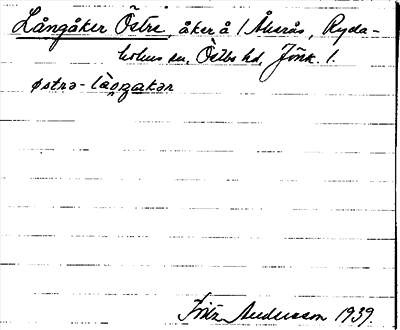 Långåker Östre, åker å 1 Åkerås, Ryda-
holms sn, Östbo hd, Jönk. l.
østrə-lȧŋgakər
Fritz Andersson 1939.